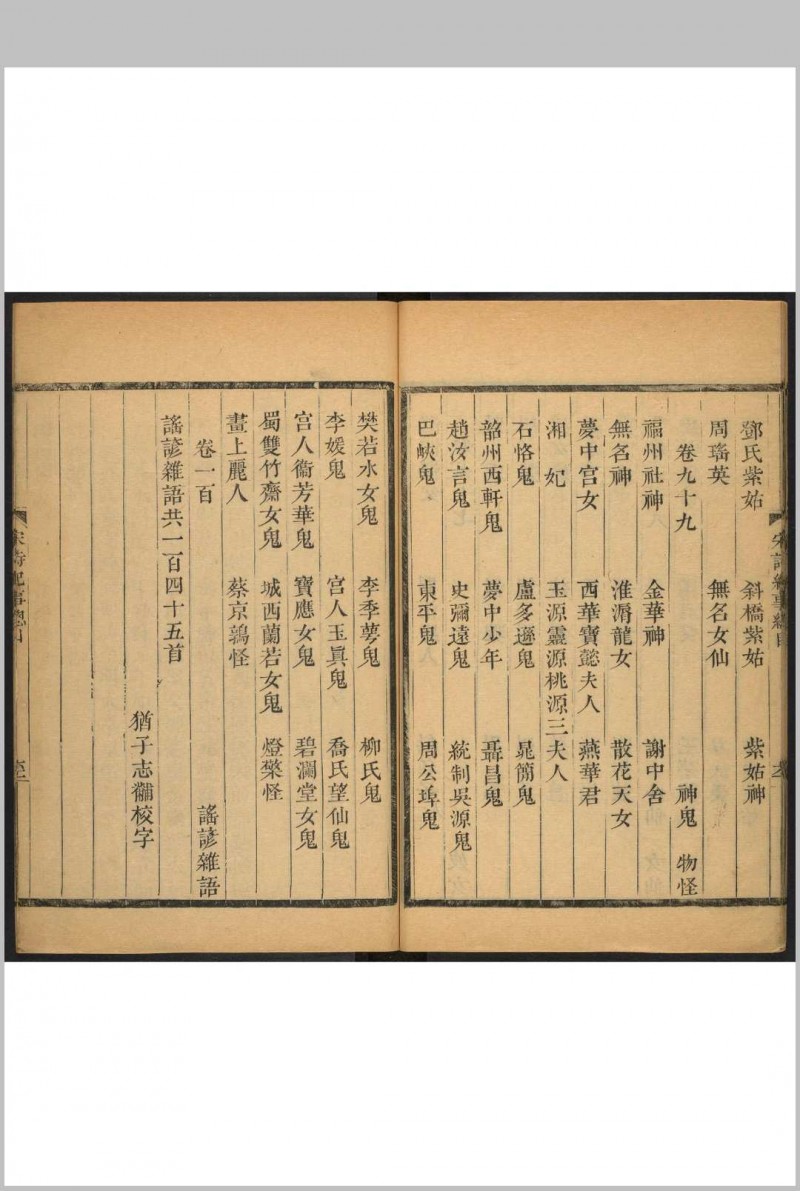 鄧氏紫姑 斜橋紫姑 紫姑神
周瑤英 無名女仙
卷九十九 神鬼 物怪
福州社神 金華神 謝中舍
無名神 淮渦龍女 散花天女
夢中宮女 西華寶懿夫人 燕華君
湘妃 玉源靈源桃源三夫人
石恪鬼 盧多遜鬼 晁簡鬼
韶州西軒鬼 夢中少年 聶昌鬼
趙汝言鬼 史彌遠鬼 統制吳源鬼
巴峽鬼 東平鬼 周公埠鬼
樊若水女鬼 李季蕚鬼 柳氏鬼
李媛鬼 宮人玉眞鬼 喬氏望仙鬼
宮人衞芳華鬼 寶應女鬼 碧瀾堂女鬼
蜀雙竹齋女鬼 城西蘭若女鬼 燈檠怪
畫上麗人 蔡京鶉怪
卷一百 謠諺雜語
謠諺雜語共一百四十五首
猶子志黼校字
宋詩紀事總目